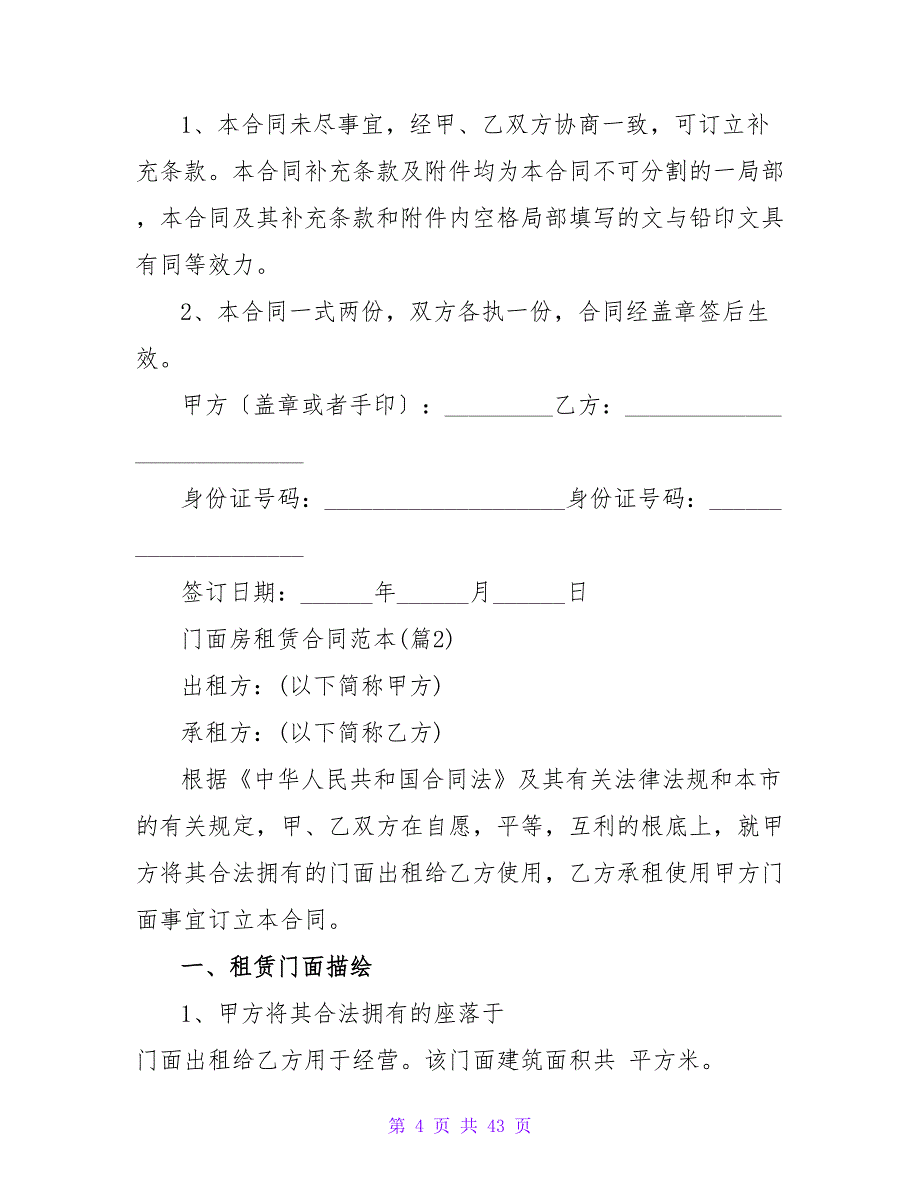 1、本合同未尽事宜，经甲、乙双方协商一致，可订立补
充条款。本合同补充条款及附件均为本合同不可分割的一局部
，本合同及其补充条款和附件内空格局部填写的文与铅印文具
有同等效力。
2、本合同一式两份，双方各执一份，合同经盖章签后生
效。
甲方〔盖章或者手印〕：_________乙方：_____________
______________
身份证号码：____________________身份证号码：______
______________
签订日期：______年______月______日
门面房租赁合同范本(篇2)
出租方：(以下简称甲方)
承租方：(以下简称乙方)
根据《中华人民共和国合同法》及其有关法律法规和本市
的有关规定，甲、乙双方在自愿，平等，互利的根底上，就甲
方将其合法拥有的门面出租给乙方使用，乙方承租使用甲方门
面事宜订立本合同。
一、租赁门面描绘
1、甲方将其合法拥有的座落于
门面出租给乙方用于经营。该门面建筑面积共 平方米。
第 4 页 共 43 页